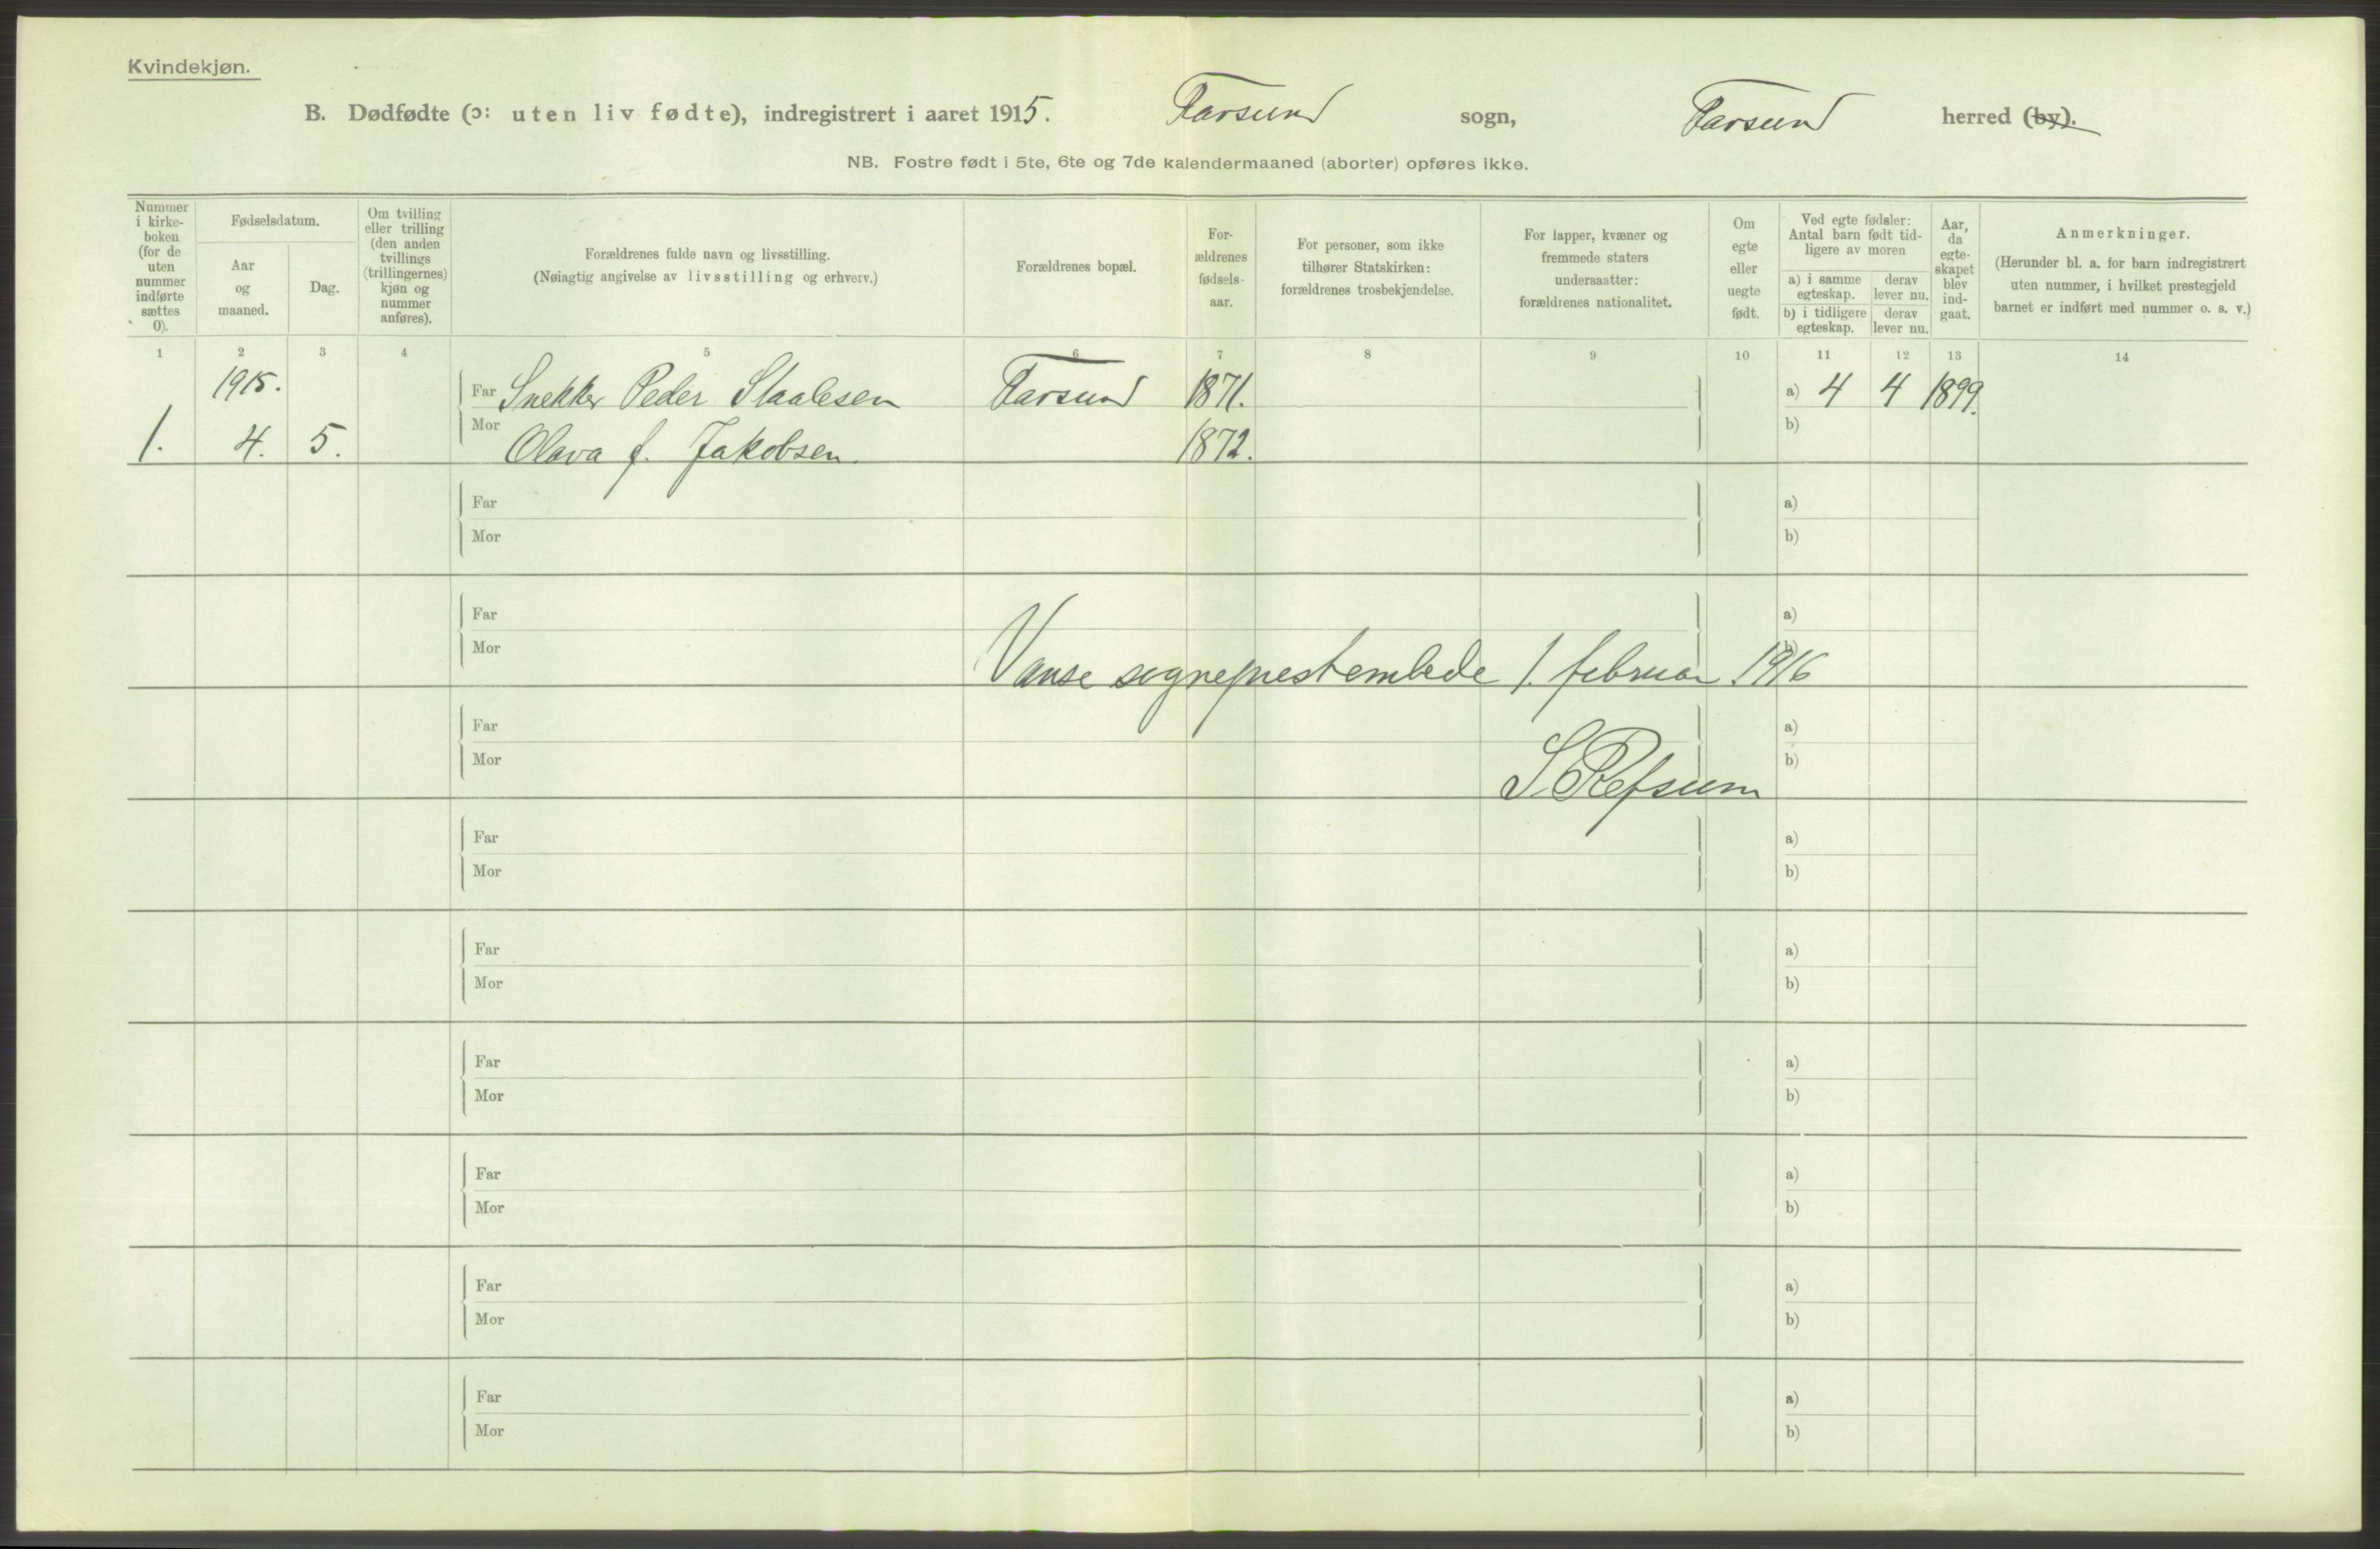 Kvindekjøn.
B. Dødfødte (ɔ: uten liv fødte), indregistrert i aaret 1915. Farsund sogn, Farsund herred (by).
NB. Fostre født i 5te, 6te og 7de kalendermaaned (aborter) opføres ikke.
Nummer
i kirke-
boken
(for de
uten
nummer
indførte
sættes
0).
Fødselsdatum.
Aar
og
maaned.
Dag.
Om tvilling
eller trilling
(den anden
tvillings
(trillingernes)
kjøn og
nummer
anføres).
Forældrenes fulde navn og livsstilling.
(Nøiagtig angivelse av livsstilling og erhverv.)
Forældrenes bopæl.
For-
ældrenes
fødsels-
aar.
For personer, som ikke
tilhører Statskirken:
forældrenes trosbekjendelse.
For lapper, kvæner og
fremmede staters
undersaatter:
forældrenes nationalitet.
Om
egte
eller
uegte
født.
Ved egte fødsler:
Antal barn født tid-
ligere av moren
a) i samme
egteskap.
derav
lever nu.
b) i tidligere
egteskap.
derav
lever nu.
Aar,
da
egte-
skapet
blev
ind-
gaat.
Anmerkninger.
(Herunder bl. a. for barn indregistrert
uten nummer, i hvilket prestegjeld
barnet er indført med nummer o. s. v.)
1 2 3 4 5 6 7 8 9 10 11 12 13 14
1915.
Far Snekker Peder Staalesen Farsund 1871. a) 4 4 1899.
Mor b)
1. 4. 5. Olava f. Jakobsen. 1872.
Far a)
Mor b)
Far a)
Mor b)
Vanse sogneprestembede 1. februar 1916
Far a)
Mor b)
S. Refsum
Far a)
Mor b)
Far a)
Mor b)
Far a)
Mor b)
Far a)
Mor b)
Far a)
Mor b)
Far a)
Mor b)